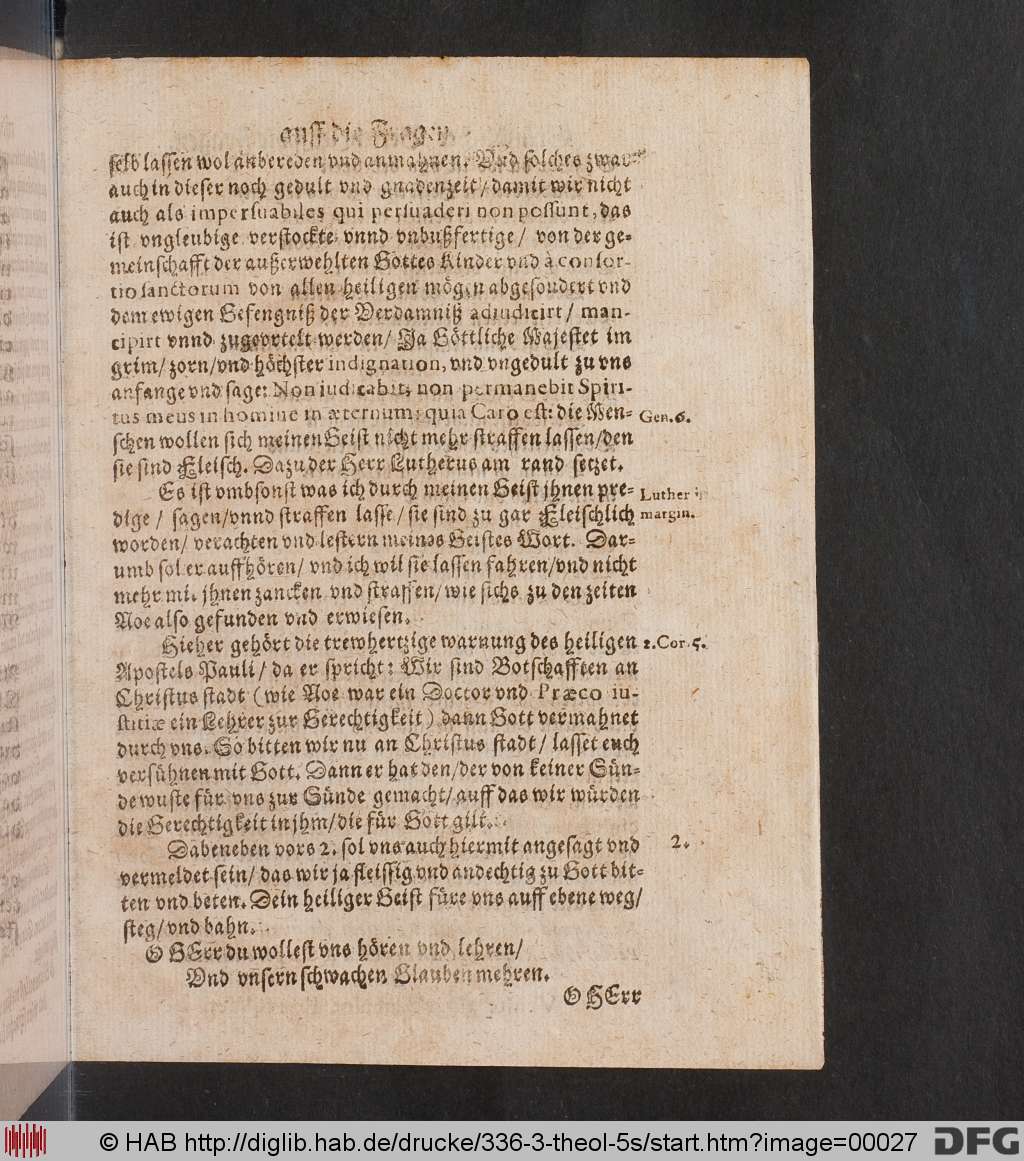 auff die Fragen.
selb lassen wol anbereden vnd anmahnen. Vnd solches zwar
auch in dieser noch gedult vnd gnadenzeit/ damit wir nicht
auch als impersuabiles qui persuaderi non possunt, das
ist vngleubige verstockte vnnd vnbußfertige/ von der ge-
meinschafft der außerwehlten Gottes Kinder vnd à consor-
tio sanctorum von allen heiligen mögen abgesondert vnd
dem ewigen Gefengniß der Verdamniß adiudicirt/ man-
cipirt vnnd zugeortelt werden/ Ja Göttliche Majestet im
grim/ zorn/ vnd höchster indignation, vnd vngedult zu vns
anfange vnd sage: Non iudicabit, non permanebit Spiri-
tus meus in homine in æternum, quia Caro est: die Men- Gen. 6.
schen wollen sich meinen Geist nicht mehr straffen lassen/ den
sie sind Fleisch. Dazu der Herr Lutherus am rand setzet.
Es ist vmbsonst was ich durch meinen Geist jhnen pre- Luther in
dige/ sagen/ vnnd straffen lasse/ sie sind zu gar Fleischlich margin.
worden/ verachten vnd lestern meines Geistes Wort. Dar-
umb sol er auffhören/ vnd ich wil sie lassen fahren/ vnd nicht
mehr mit jhnen zancken vnd straffen/ wie sichs zu den zeiten
Noe also gefunden vnd erwiesen.
Hieher gehört die trewhertzige warnung des heiligen 2. Cor. 5.
Apostels Pauli/ da er spricht: Wir sind Botschafften an
Christus stadt (wie Noe war ein Doctor vnd Præco iu-
stitiæ ein Lehrer zur Gerechtigkeit) dann Gott vermahnet
durch vns. So bitten wir nu an Christus stadt/ lasset euch
versühnen mit Gott. Dann er hat den/ der von keiner Sün-
de wuste für vns zur Sünde gemacht/ auff das wir würden
die Gerechtigkeit in jhm/ die für Gott gilt.
Dabeneben vors 2. sol vns auch hiermit angesagt vnd 2.
vermeldet sein/ das wir ja fleissig vnd andechtig zu Gott bit-
ten vnd beten. Dein heiliger Geist füre vns auff ebene weg/
steg/ vnd bahn.
O HErr du wollest vns hören vnd lehren/
Vnd vnsern schwachen Glauben mehren.
O HErr
© HAB http://diglib.hab.de/drucke/336-3-theol-5s/start.htm?image=00027 DFG